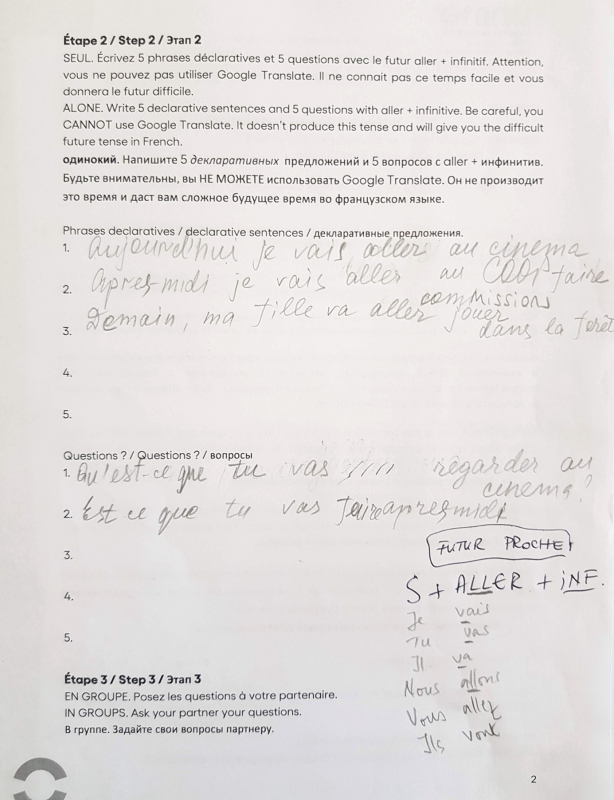 Étape 2 / Step 2 / Этап 2
SEUL. Écrivez 5 phrases déclaratives et 5 questions avec le futur aller + infinitif. Attention,
vous ne pouvez pas utiliser Google Translate. Il ne connait pas ce temps facile et vous
donnera le futur difficile.
ALONE. Write 5 declarative sentences and 5 questions with aller + infinitive. Be careful, you
CANNOT use Google Translate. It doesn't produce this tense and will give you the difficult
future tense in French.
одинокий. Напишите 5 декларативных предложений и 5 вопросов с aller + инфинитив.
Будьте внимательны, вы НЕ МОЖЕТЕ использовать Google Translate. Он не производит
это время и даст вам сложное будущее время во французском языке.
Phrases declaratives / declarative sentences / декларативные предложения.
1. Aujourd'hui je vais aller au cinema
2. Apres-midi je vais aller au COOP faire
commissions
3. Demain, ma fille va aller jouer
dans la forêt
4.
5.
Questions ? / Questions ? / вопросы
1. Qu'est-ce que tu vas regarder au
cinema?
2. Est ce que tu vas faire apresmidi
3.
FUTUR PROCHE
4. S + ALLER + INF.
Je vais
Tu vas
5. Il va
Nous allons
Vous allez
Ils vont
Étape 3 / Step 3 / Этап 3
EN GROUPE. Posez les questions à votre partenaire.
IN GROUPS. Ask your partner your questions.
В группе. Задайте свои вопросы партнеру.
2